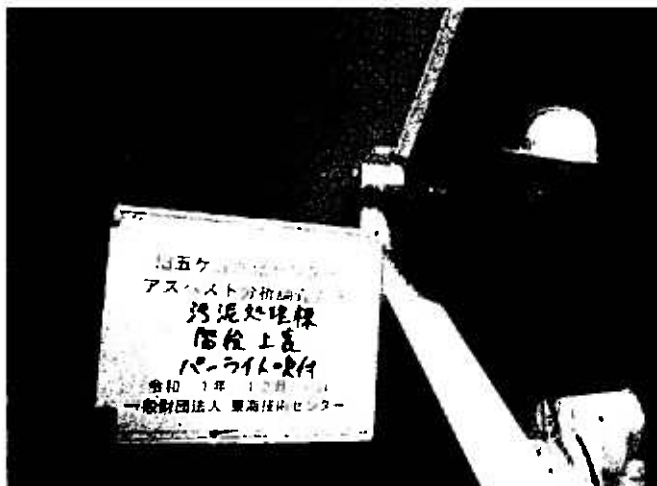 旧五ケ
アスベスト分析調
汚泥処理棟
階段上裏
パーライト吹付
令和 1年 12月
一般財団法人 東海技術センター